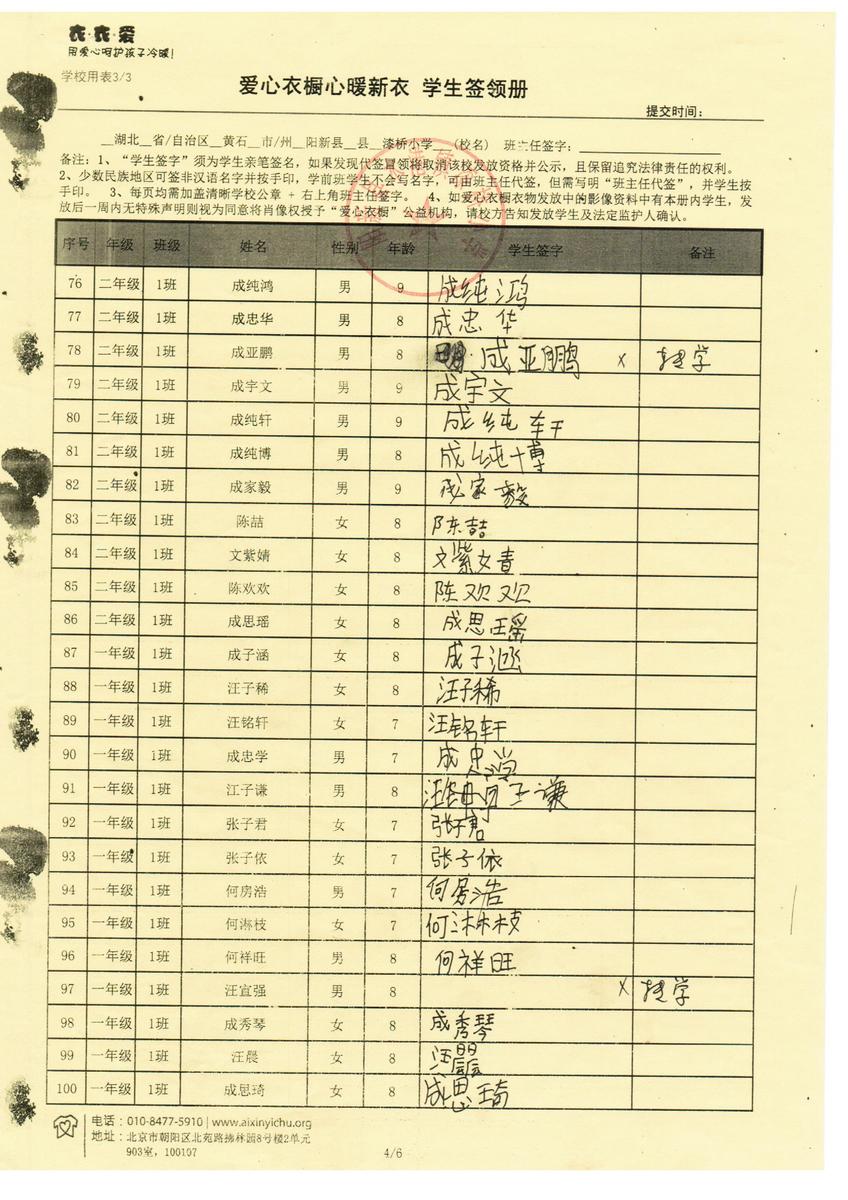 衣·衣·爱
用爱心呵护孩子冷暖!
学校用表3/3
爱心衣橱心暖新衣 学生签领册
提交时间:
__湖北__省/自治区__黄石__市/州__阳新县__县__漆桥小学__(校名) 班主任签字:
备注:1、“学生签字”须为学生亲笔签名,如果发现代签冒领将取消该校发放资格并公示,且保留追究法律责任的权利。
2、少数民族地区可签非汉语名字并按手印,学前班学生不会写名字,可由班主任代签,但需写明“班主任代签”,并学生按
手印。 3、每页均需加盖清晰学校公章 + 右上角班主任签字。 4、如爱心衣橱衣物发放中的影像资料中有本册内学生,发
放后一周内无特殊声明则视为同意将肖像权授予“爱心衣橱”公益机构,请校方告知发放学生及法定监护人确认。
序号 年级 班级 姓名 性别 年龄 学生签字 备注
76 二年级 1班 成纯鸿 男 9 成纯鸿
77 二年级 1班 成忠华 男 8 成忠华
78 二年级 1班 成亚鹏 男 8 成亚鹏 x 转学
79 二年级 1班 成宇文 男 9 成宇文
80 二年级 1班 成纯轩 男 9 成纯轩
81 二年级 1班 成纯博 男 8 成纯博
82 二年级 1班 成家毅 男 9 成家毅
83 二年级 1班 陈喆 女 8 陈喆
84 二年级 1班 文紫婧 女 8 文紫婧
85 二年级 1班 陈欢欢 女 8 陈欢欢
86 二年级 1班 成思瑶 女 8 成思瑶
87 一年级 1班 成子涵 女 8 成子涵
88 一年级 1班 汪子稀 女 8 汪子稀
89 一年级 1班 汪铭轩 女 7 汪铭轩
90 一年级 1班 成忠学 男 7 成忠学
91 一年级 1班 江子谦 男 8 子谦
92 一年级 1班 张子君 女 7 张子君
93 一年级 1班 张子依 女 7 张子依
94 一年级 1班 何房浩 男 7 何房浩
95 一年级 1班 何淋枝 女 7 何淋枝
96 一年级 1班 何祥旺 男 8 何祥旺
97 一年级 1班 汪宜强 男 8 x 转学
98 一年级 1班 成秀琴 女 8 成秀琴
99 一年级 1班 汪晨 女 8 汪晨
100 一年级 1班 成思琦 女 8 成思琦
电话:010-8477-5910 | www.aixinyichu.org
地址:北京市朝阳区北苑路拂林园8号楼2单元
903室,100107
4/6